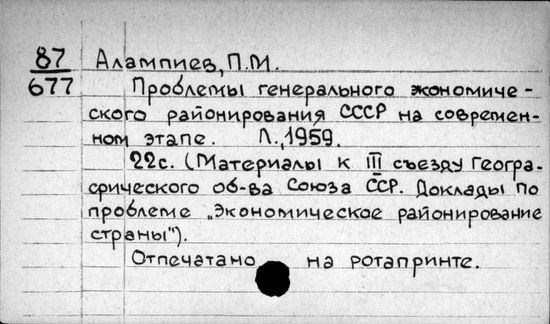 87 Алампиев, П.М.
677 Проблемы генерального экономиче-
ского районирования СССР на современ-
ном этапе. Л., 1959.
22с. (Материалы к III съезду Геогра-
фического об-ва Союза ССР. Доклады по
проблеме „Экономическое районирование
страны").
Отпечатано на ротапринте.